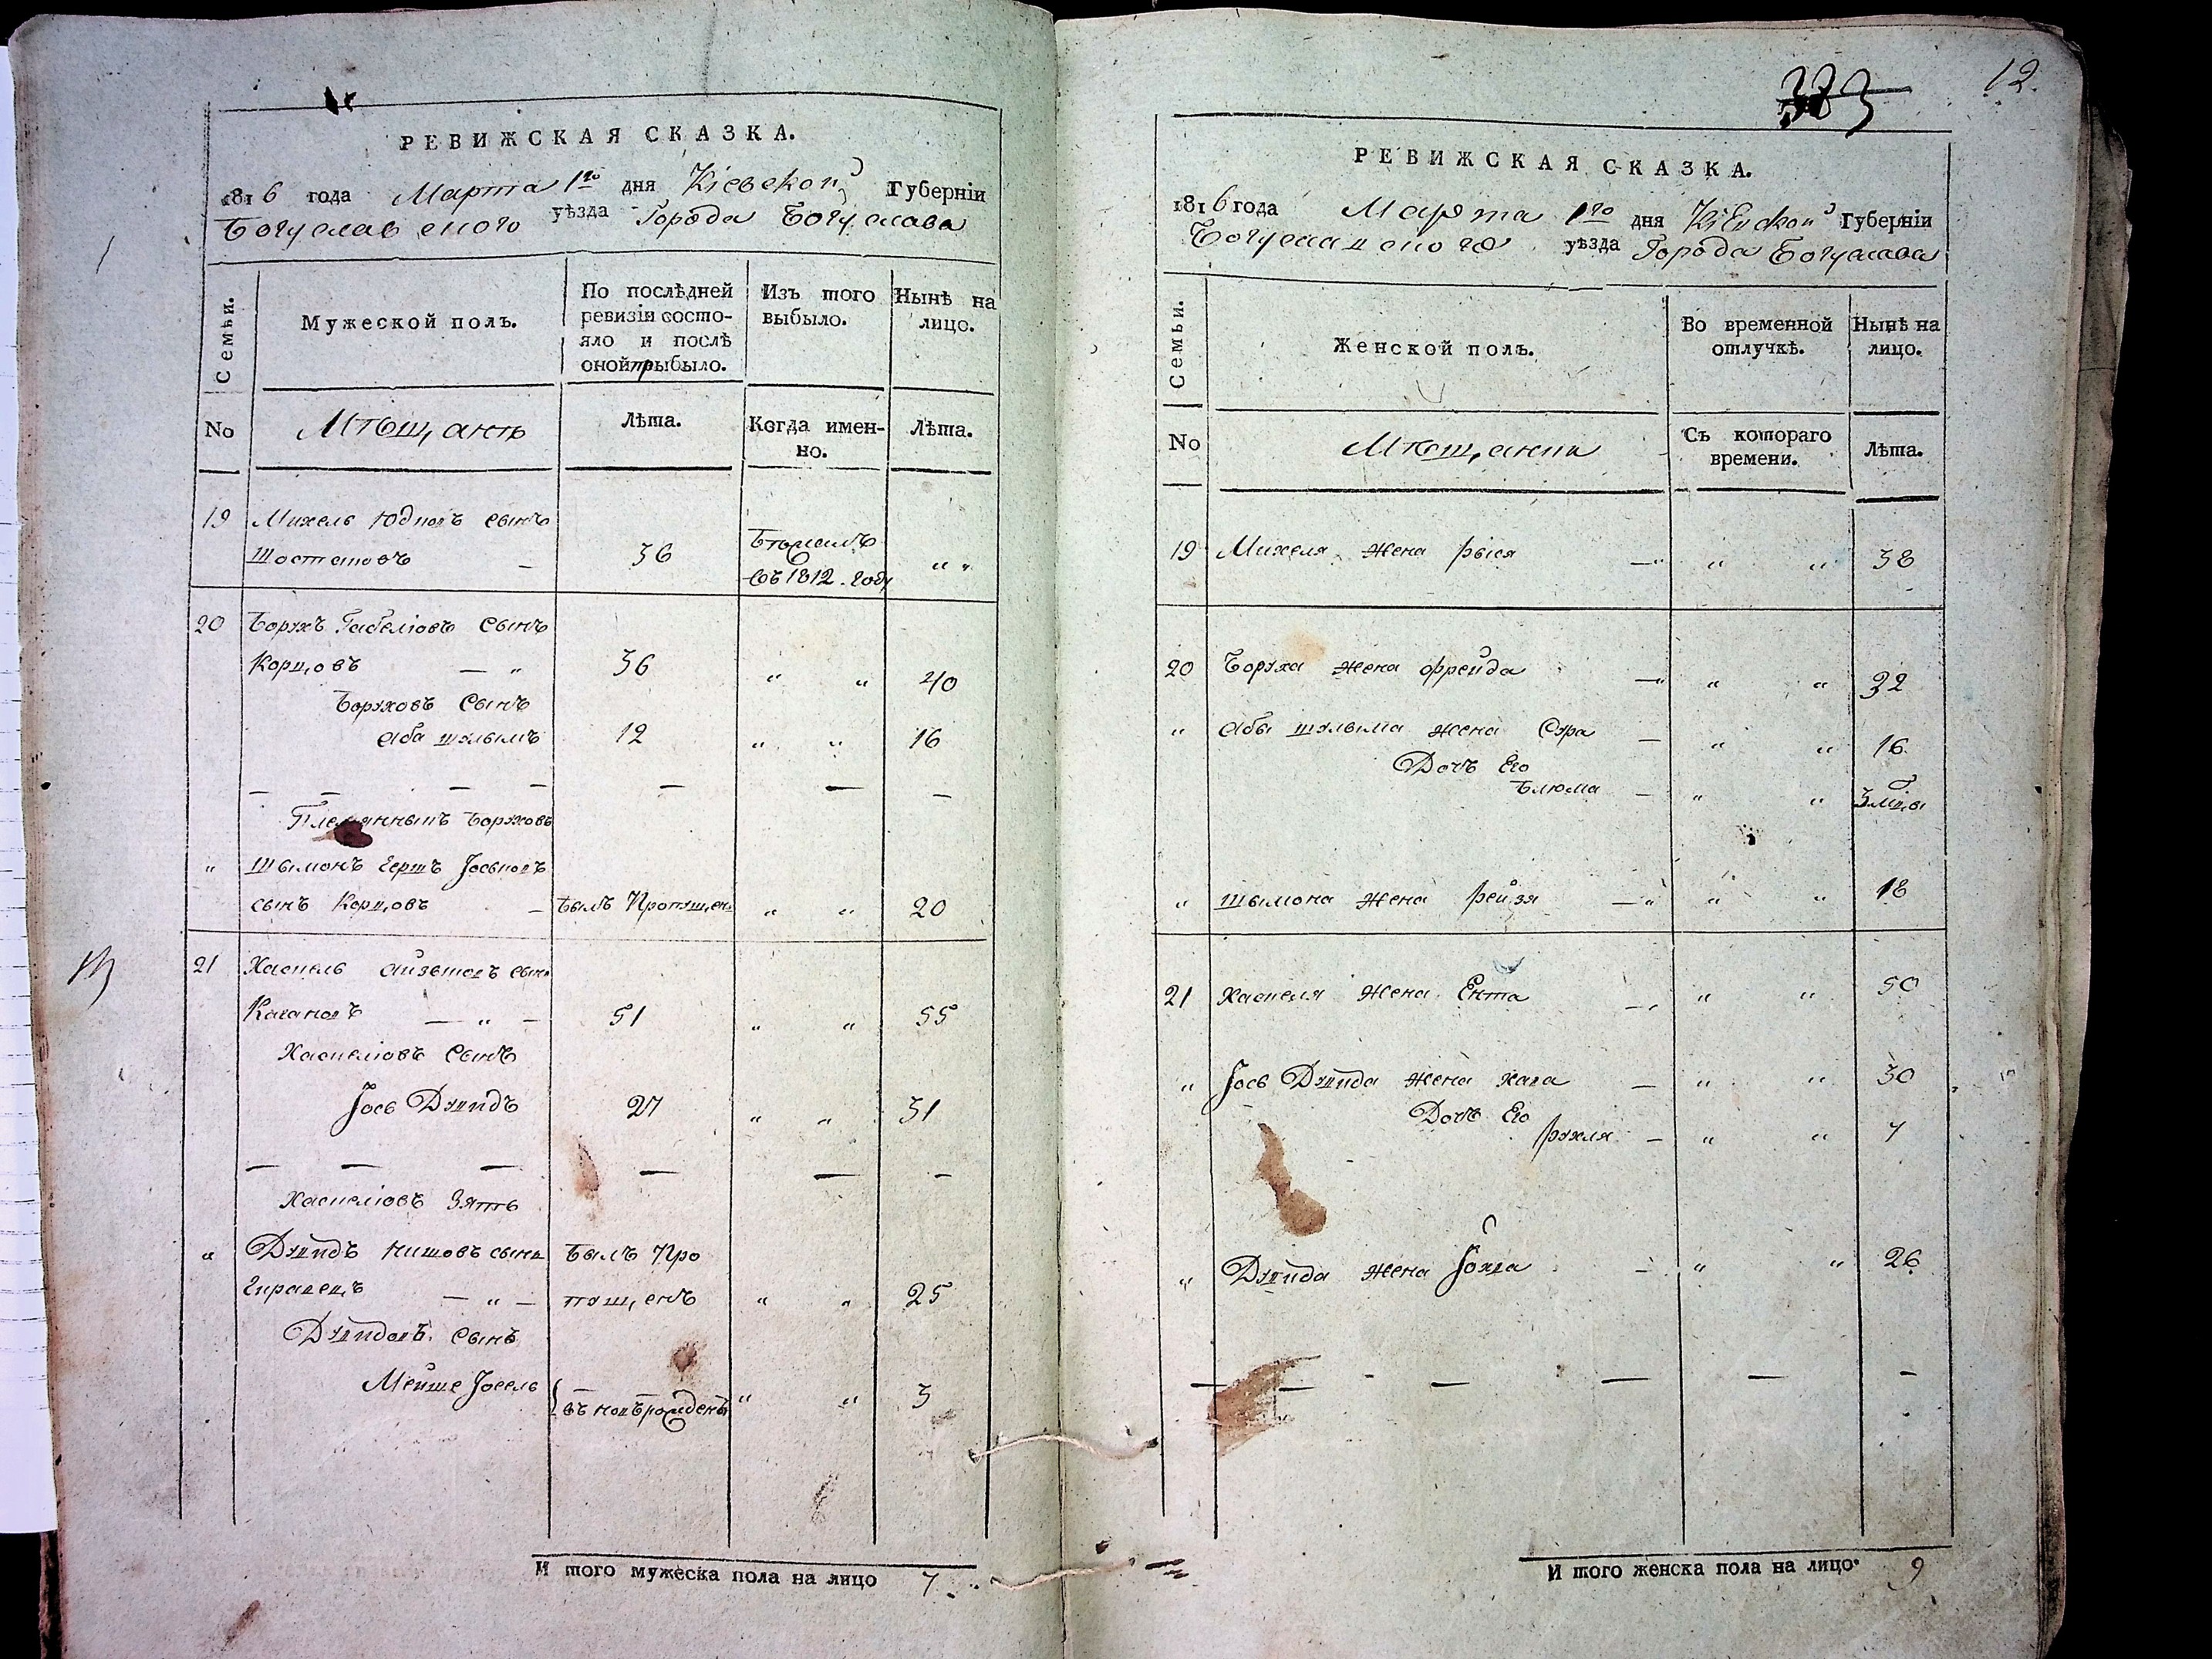 РЕВИЖСКАЯ СКАЗКА.
1816 года Марта 1го дня Кіевской Губерніи
Богуславского уѣзда Города Богуслава
Семьи.
Мужеской полъ.
По послѣдней ревизіи состо-
яло и послѣ
оной прыбыло.
Изъ того
выбыло.
Нынѣ на
лицо.
No
Мѣщанъ
Лѣта.
Когда имен-
но.
Лѣта.
19 Михель Юдковъ сынъ
36 Бѣжалъ
въ 1812 году „ „
20 Борухъ Гавеліовъ сынъ
Корцовъ — „ 36 „ „ 40
Боруховъ сынъ
Аба Шулымъ 12 „ „ 16
— — — — — — —
Племянныкъ Боруховъ
„ Шымонъ Гершъ Іоськовъ
сынъ Корцовъ — былъ Пропущен „ „ 20
21 Хаскель Айзыковъ сынъ
Кагановъ — „ — 51 „ „ 55
Хаскеліовъ сынъ
Іось Дувидъ 27 „ „ 31
— — — — — —
Хаскеліовъ Зять
„ Дувидъ сынъ былъ Про
— „ — пущенъ „ „ 25
Дувидовъ сынъ
Мейше Іосель въ новѣ рожденъ „ „ 3
И того мужеска пола на лицо 7
12.
383
РЕВИЖСКАЯ СКАЗКА.
1816 года Марта 1го дня Кіевской Губерніи
Богуславского уѣзда Города Богуслава
Семьи.
Женской полъ.
Во временной
отлучкѣ.
Нынѣ на
лицо.
No
Мѣщанки
Съ котораго
времени.
Лѣта.
19 Михеля жена рыся — „ „ 38
20 Боруха жена фрейда — „ „ 32
„ Абы шулыма жена Сура — „ „ 16
Дочъ Его
Блюма — „ „ 3 мца
„ Шымона жена рейзя — „ „ „ 18
21 Хаскеля жена Ента — „ „ 50
„ Іось Дувида жена хага — „ „ 30
Дочъ Его
рухля — „ „ 7
„ Дувида жена — „ „ 26
— — — — — —
И того женска пола на лицо 9